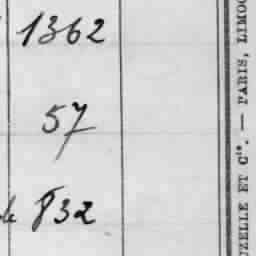 1362
57
832
UZELLE ET Cie. — PARIS, LIMOG